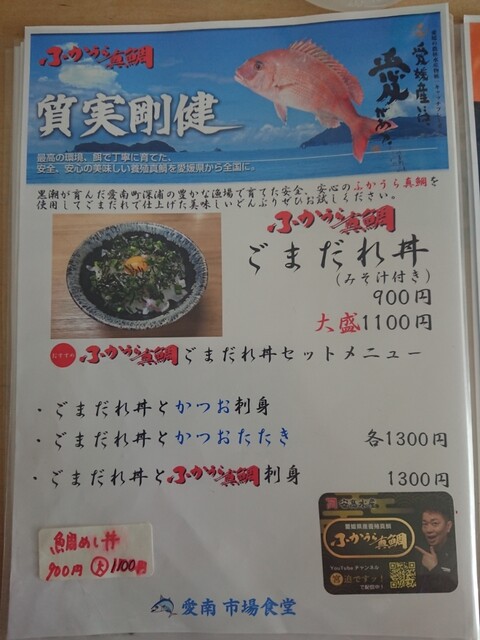 ふかうら真鯛
質実剛健
最高の環境、餌で丁寧に育てた、
安全、安心の美味しい養殖真鯛を愛媛県から全国に。
黒潮が育んだ愛南町深浦の豊かな漁場で育てた安全、安心のふかうら真鯛を
使用してごまだれで仕上げた美味しいどんぶりぜひお試しください。
ふかうら真鯛
ごまだれ丼
(みそ汁付き)
900円
大盛1100円
おすすめ ふかうら真鯛ごまだれ丼セットメニュー
・ごまだれ丼とかつお刺身
・ごまだれ丼とかつおたたき 各1300円
・ごまだれ丼とふかうら真鯛刺身 1300円
鯛めし丼
900円 大1100円
安高水産
愛媛県産養殖真鯛
ふかうら真鯛
YouTubeチャンネル
にて配信中!
愛南市場食堂